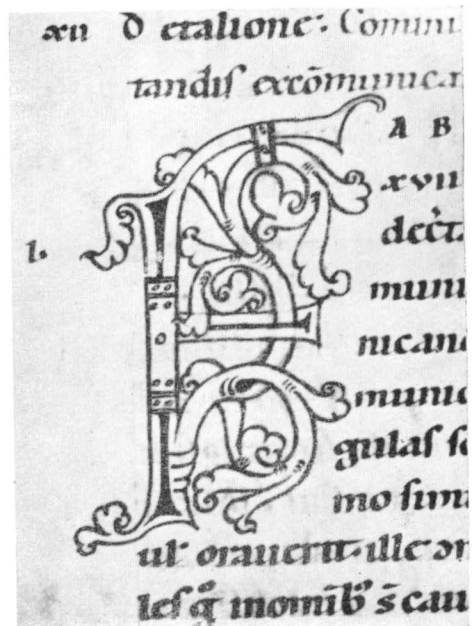 xii D etalione. Comuni
tandiſ excōmunica
F A B
xvii
l.
decr̄t
muni
nican
munic
gulaſ ſ
mo ſimi
ul' orauerit. ille
leſ inomīb' s̄ cau